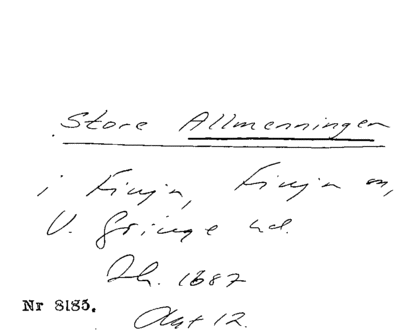 Store Allmenningen
i Finja, Finja sn,
V. Göinge hd.
Dh. 1687
Akt 12.
Nr 8185.